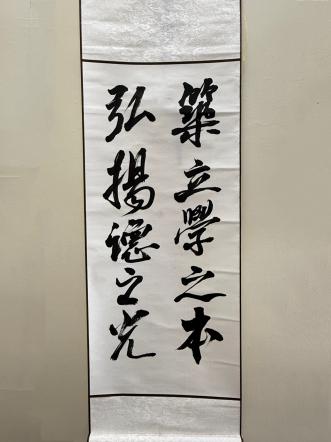 築立學之本
弘揚德之光